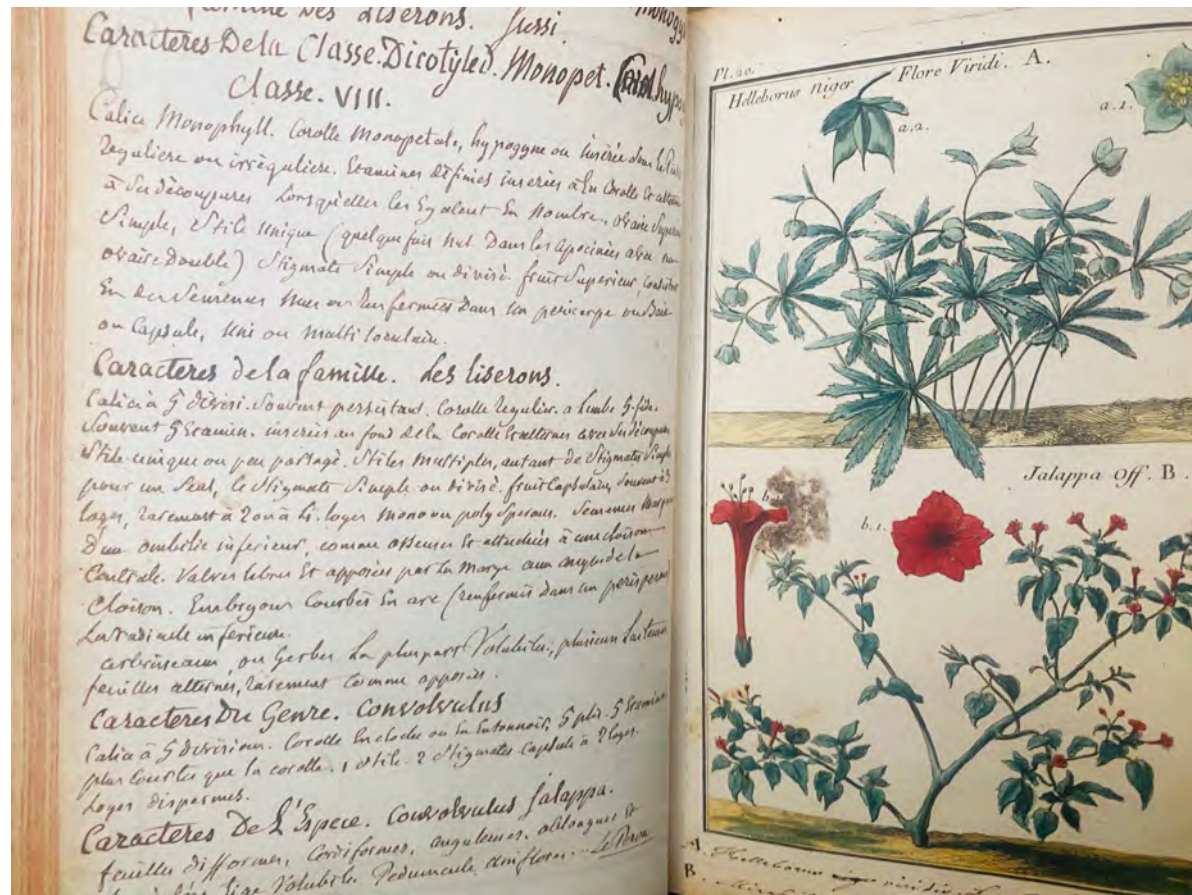 famille Des Liserons. Jussi.
Monogy
Caracteres De la Classe. Dicotyled. Monopet. hypo
Classe. VIII.
Calice Monophyll. Corolle Monopetale, hypogyne ou insérée dans le
Reguliere ou irrègulière. Etamines définies inserées à la Corolle et altern
à Ses dècoupures Lorsqu'elles les Egalent En Nombre. Ovaire Superieu
Simple, Stile unique (quelque fois Nul Dans les Apocinées avec un
ovaire Double) Stigmate Simple ou divisè. fruit Superieur, Consist
En des Semences Nues ou Renfermées Dans un pericarpe ou Baie
ou Capsule, Uni ou Multi loculaire.
Caracteres de la famille. Les liserons.
Calice à 5 divisi. Souvent persistant. Corolle Regulier. a Limbe 5. fide.
Souvent 5 Etamin. inserées au fond de la Corolle Et alternes avec Ses découpur
Stile unique ou peu partagè. Stiles Multiples, autant de Stigmates Simple
pour un Seul, le Stigmate Simple ou divisè. fruit Capsulaire, Souvent à 3
loges, rarement à 2 ou à 4. loges Mono ou poly Spermes. Semences
D'un ombilic inferieur, comme osseuses Et attachées à une cloison
Centrale. Valves libres Et apposées par la Marge aux angles de la
Cloison. Embryon Courbès En arc (renfermés Dans un perisperm
La Radicule inferieure.
arbrisseaux, ou herbes la plupart Volubiles, plusieurs Laiteus
feuilles alternes, rarement Comme apposées.
Caracteres Du Genre. Convolvulus
Calice à 5 divisions. Corolle En cloche ou En Entonnoir, 5 plis. 5 Etamines
plus Courtes que la corolle. 1 Stile. 2 Stigmates Capsule à 2 loges.
Loges dispermes.
Caracteres De L'Espece. Convolvulus Jalappa.
feuilles difformes, Cordiformes, anguleuses, oblongues et
tige Volubile. Pedunculе uniflores.
Pl. 20.
Helleborus niger
Flore Viridi. A.
a.1.
a.2.
Jalappa Off. B.
b.
b.1.
A. Helleborus niger
B.